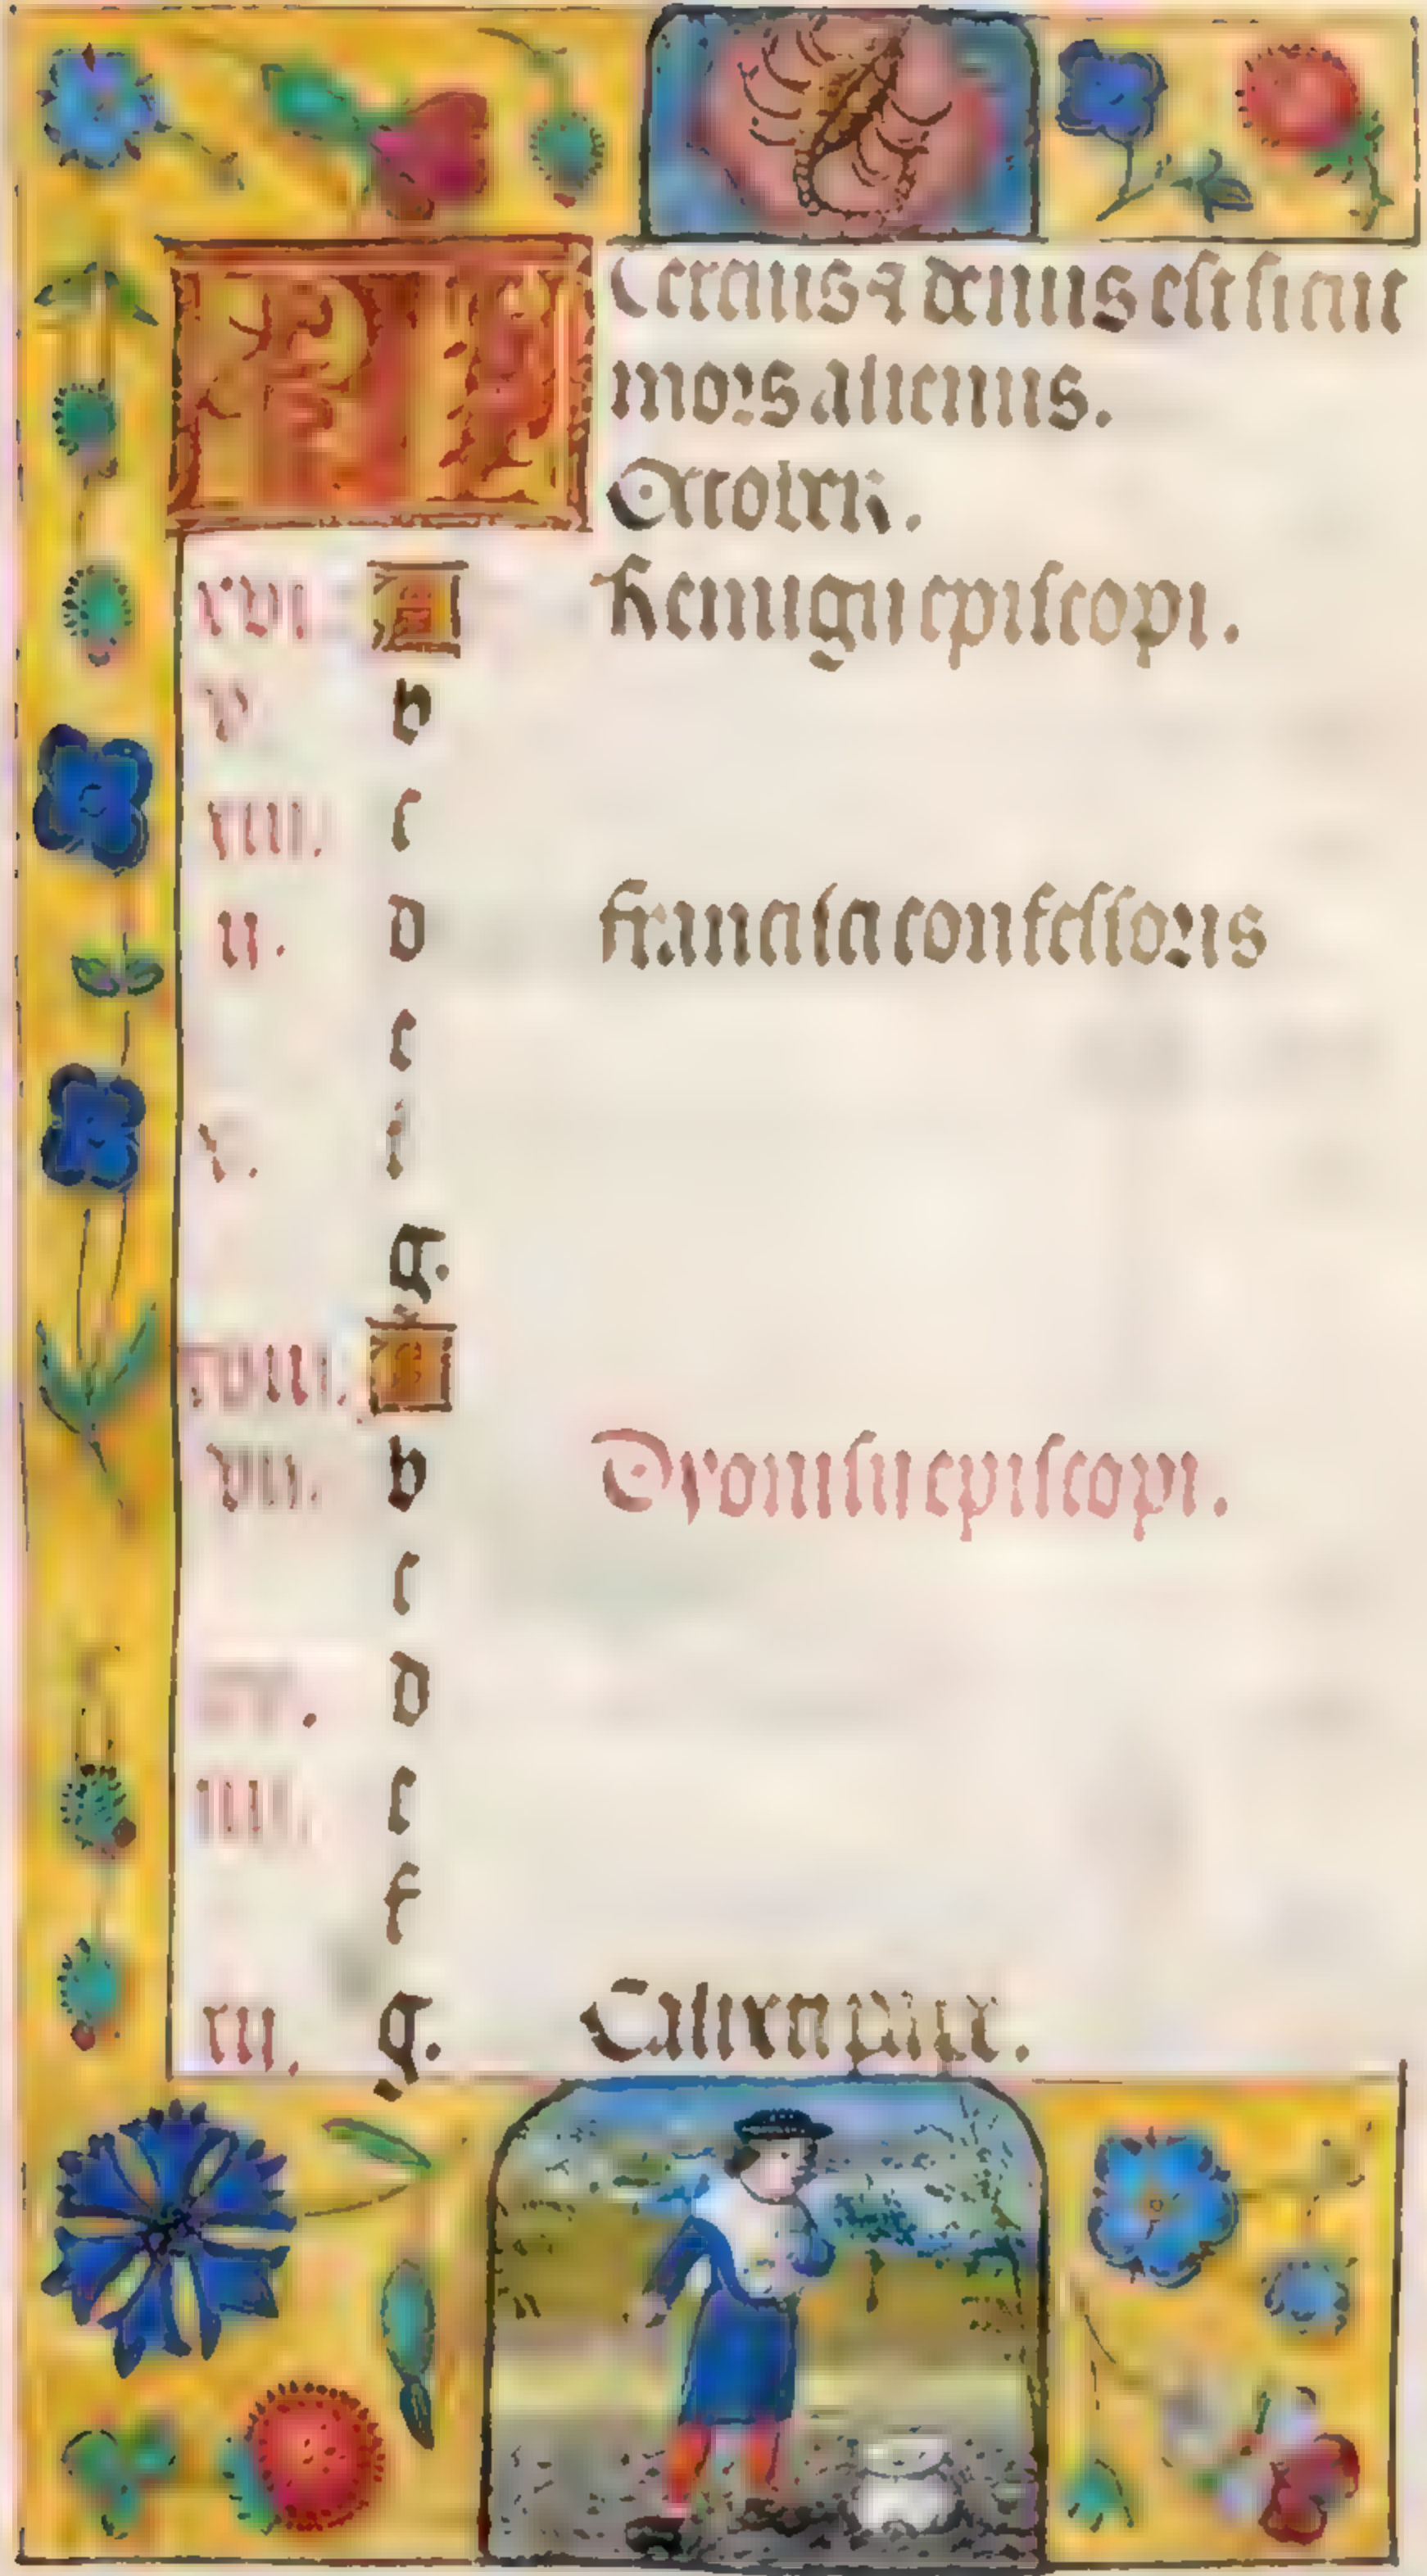 KL Tercius & denus est sicut
mors alienus.
Octobris.
xvi. A Remigii episcopi.
v. b
xiii. c
ii. d Francisci confessoris
e
x. f
g.
xviii. A
vii. b Dyonisii episcopi.
c
xv. d
iiii. e
f
xii. g. Calixti pape.